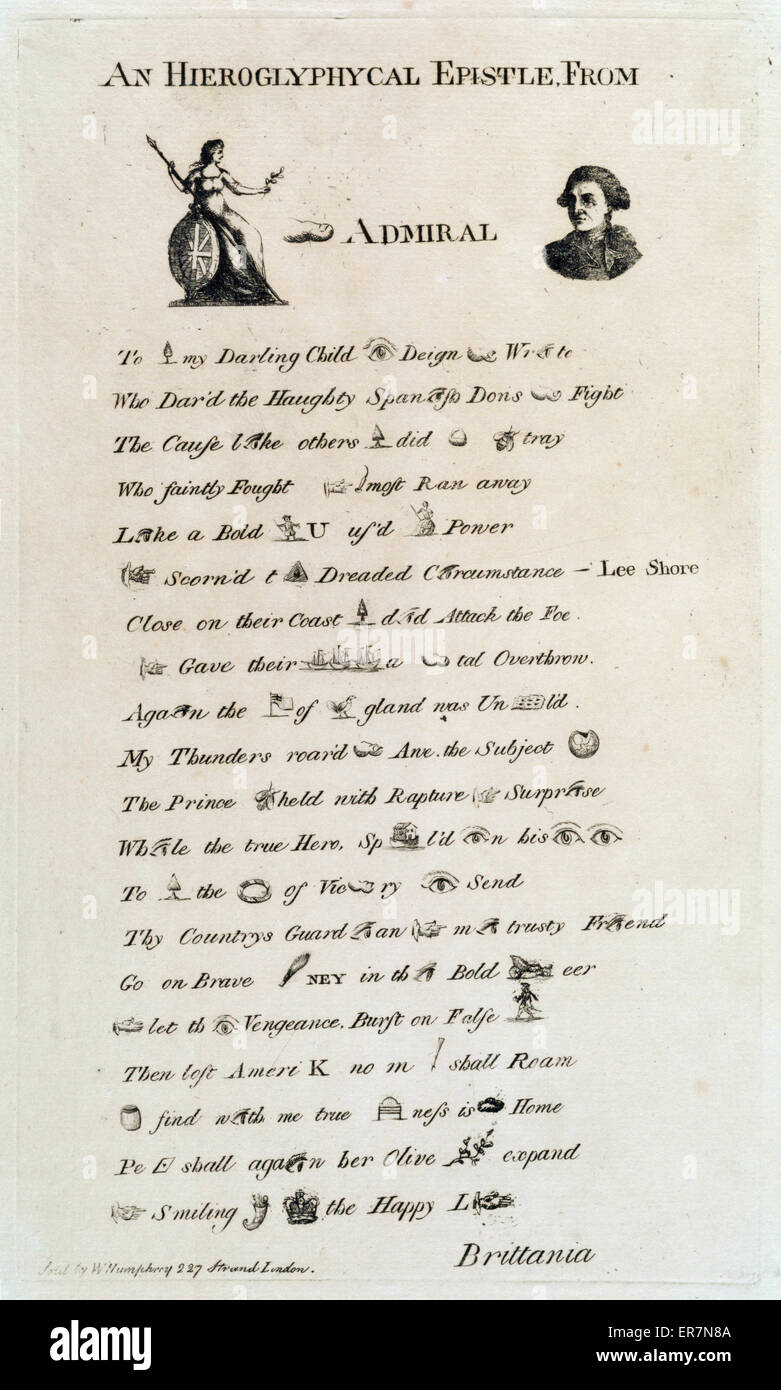 AN HIEROGLYPHYCAL EPISTLE, FROM
ADMIRAL
To my Darling Child Deign Wr te
Who Dar'd the Haughty Span ſh Dons Fight
The Cauſe l ke others did tray
Who faintly Fought moſt Ran away
L ke a Bold U uſ'd Power
Scorn'd t Dreaded C rcumstance – Lee Shore
Close on their Coast d d Attack the Foe.
Gave their a tal Overthrow.
Aga n the of gland was Un ld.
My Thunders roar'd Awe. the Subject
The Prince held with Rapture Surpr se
Wh le the true Hero, Sp l'd n his
To the of Vic ry Send
Thy Countrys Guard an m trusty Fr end
Go on Brave NEY in th Bold eer
let th Vengeance, Burſt on Falſe
Then loſt Ameri K no m shall Roam
find w th me true neſs is Home
Pe shall aga n her Olive expand
Smiling the Happy L
Brittania
Sold by W Humphrey 227 Strand London.
alamy
Image ID: ER7N8A
www.alamy.com